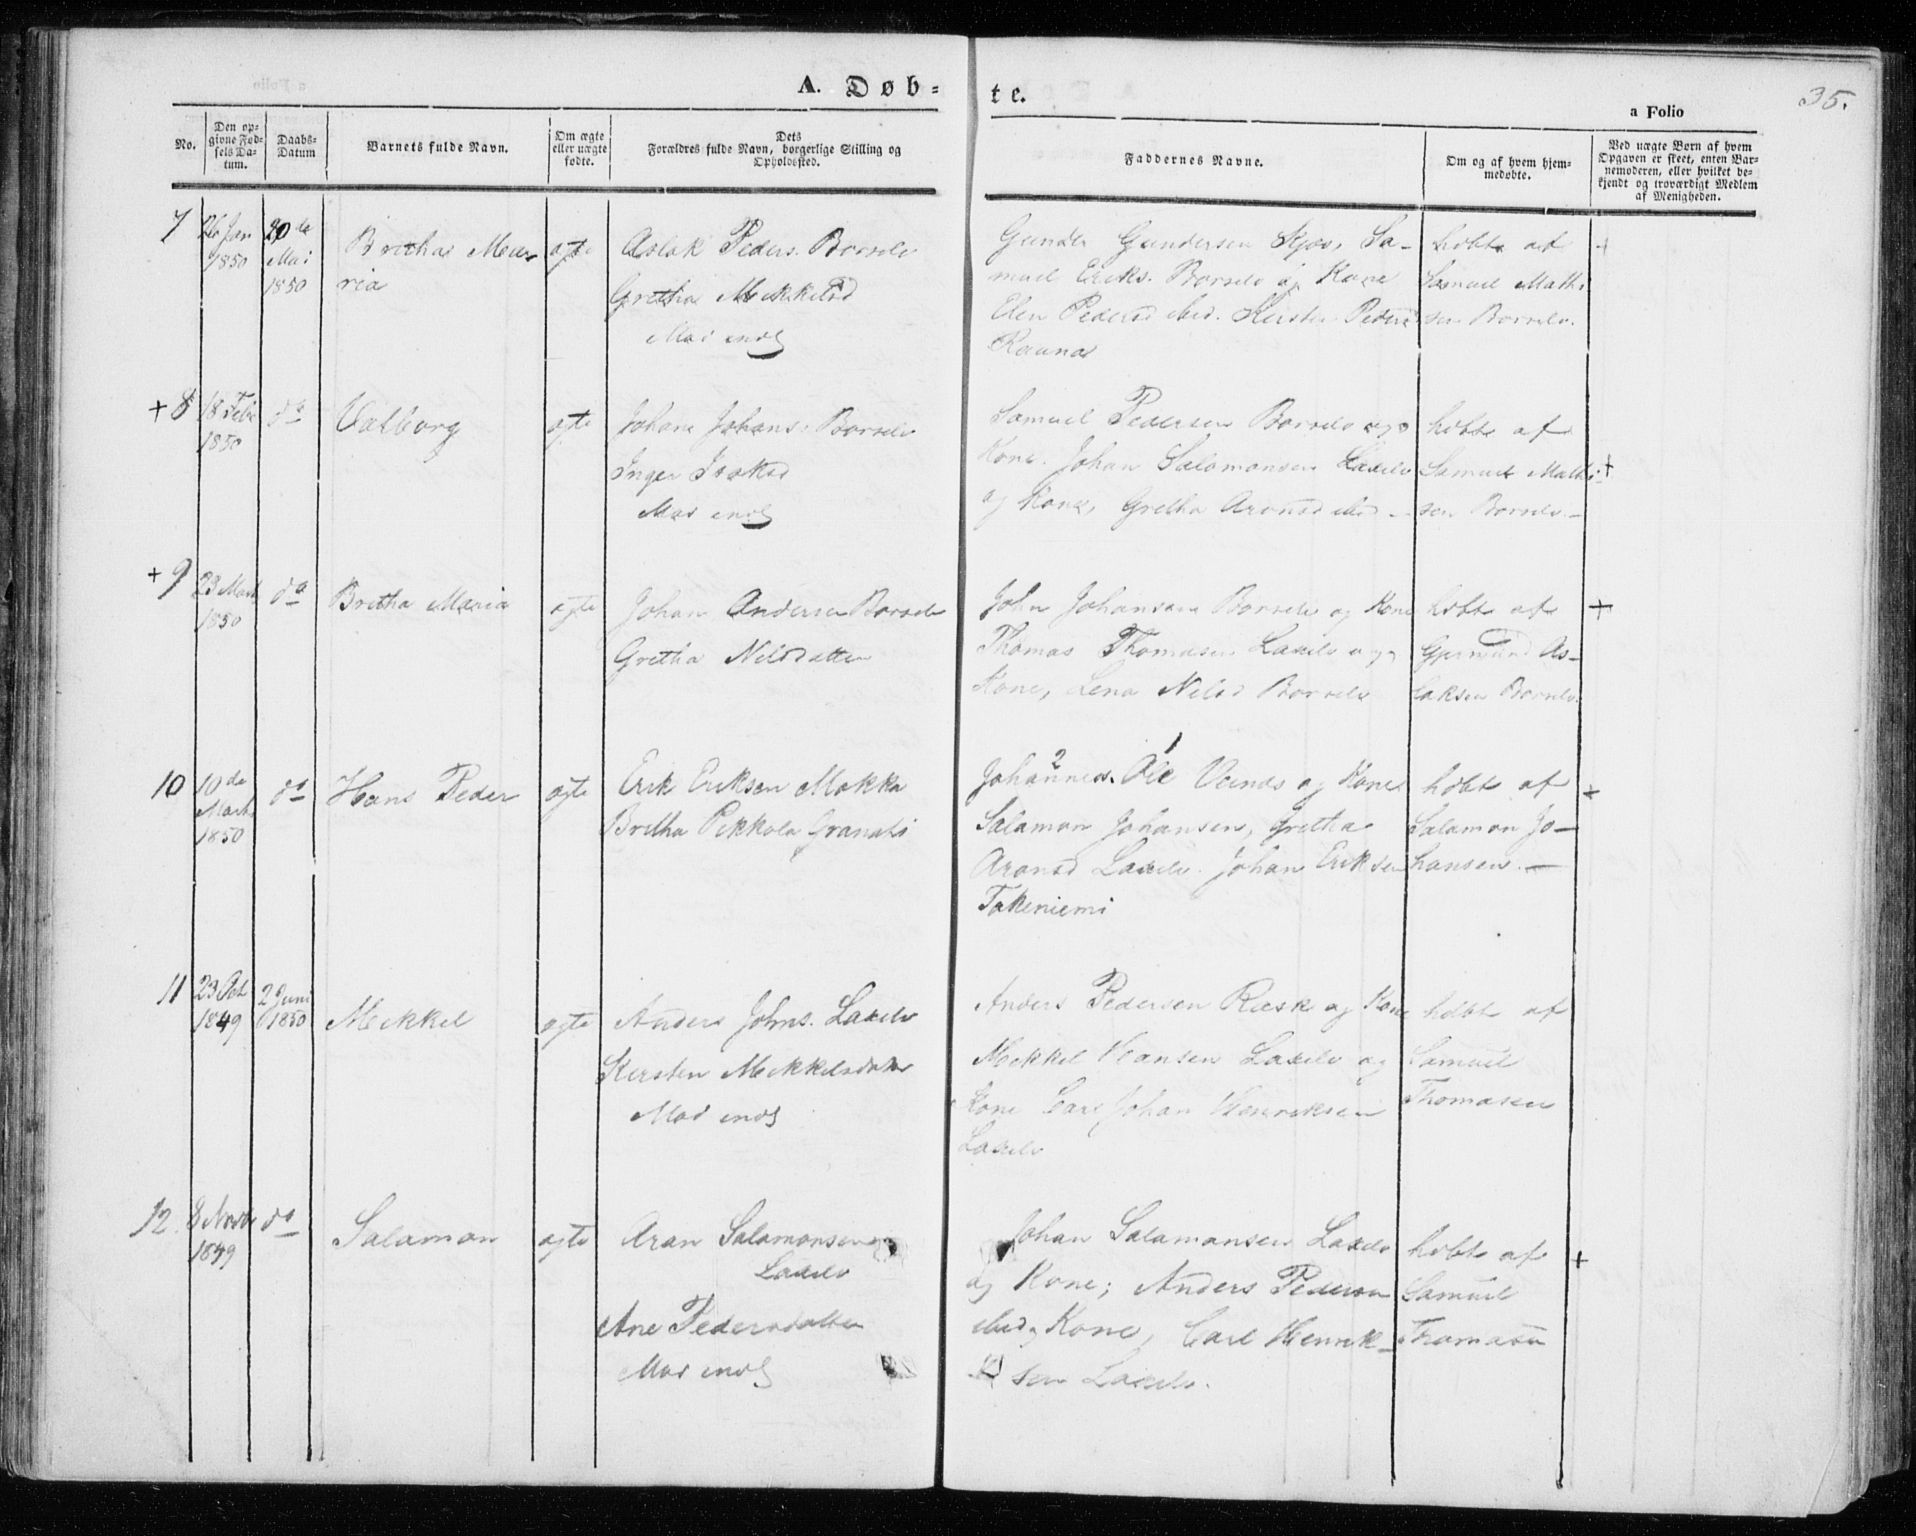 A. Døb-
te.
35.
a Folio
No.
Den op-
givne Fød-
sels Da-
tum.
Daabs-
Datum
Barnets fulde Navn.
Om ægte
eller uægte
fødte.
Dets
Forældres fulde Navn, borgerlige Stilling og
Opholdssted.
Faddernes Navne.
Om og af hvem hjem-
medøbte.
Ved uægte Børn af hvem
Opgaven er skeet, enten Bar-
nemoderen, eller hvilket be-
kjendt og troværdigt Medlem
af Menigheden.
7
26 Jan
1850
20de
Mai
1850
Bretha Ma
ria
ægte
Aslak Peders. Borselv
Gretha Mekkelsd
Gunder Gundersen Sa-
muel Eriks. Borselv og Kone
Elen Pedersd ibid. Kirsten Pedersd
Rauna
hdbt af
Samuel Mathi
sen Borselv.
+
+ 8
18 Feb
1850
do
Valborg
ægte
Johan Johans. Borselv
Inger Isaksd
Samuel Pedersen Borselv og
Kone. Johan Salamonsen Laxelv
og Kone, Gretha Aronsd ibid -
hdbt af
Samuel Mathi-
sen Borselv.-
+
+ 9
23 Marts
1850
do
Bretha Maria
ægte
Johan Andersen Borselv
Gretha Nilsdatter
John Johansen Borselv og Kone
Thomas Thomasen Laxelv og
Kone, Lena Nilsd Borselv
hdbt af
As-
laksen Borselv.
+
10
10de
Marts
1850
do
Hans Peder
ægte
Erik Eriksen Makka
Bretha Pekkola
2 1
Johannes. Ole og Kone
Salamon Johansen, Gretha
Aronsd Laxelv. Johan Eriksen
Takeniemi
hdbt af
Salamon Jo-
hansen. -
+
11
23 Oct
1849
2 Juni
1850
Mekkel
ægte
Anders Johns. Laxelv
Kirsten Mekkelsdatter
Anders Pedersen Ræsk og Kone
Mekkel Hansen Laxelv og
Kone Carl Johan Henriksen
Laxelv
hdbt af
Samuel
Thomasen
12.
8 Novbr
1849
do
Salamon
ægte
Aran Salamonsen
Laxelv
Ane Pedersdatter
Johan Salamonsen Laxelv
og Kone; Anders Pedersen
ibid og Kone, Carl Henrik-
sen Laxelv.
hdbt af
Samuel
Thomasen
+